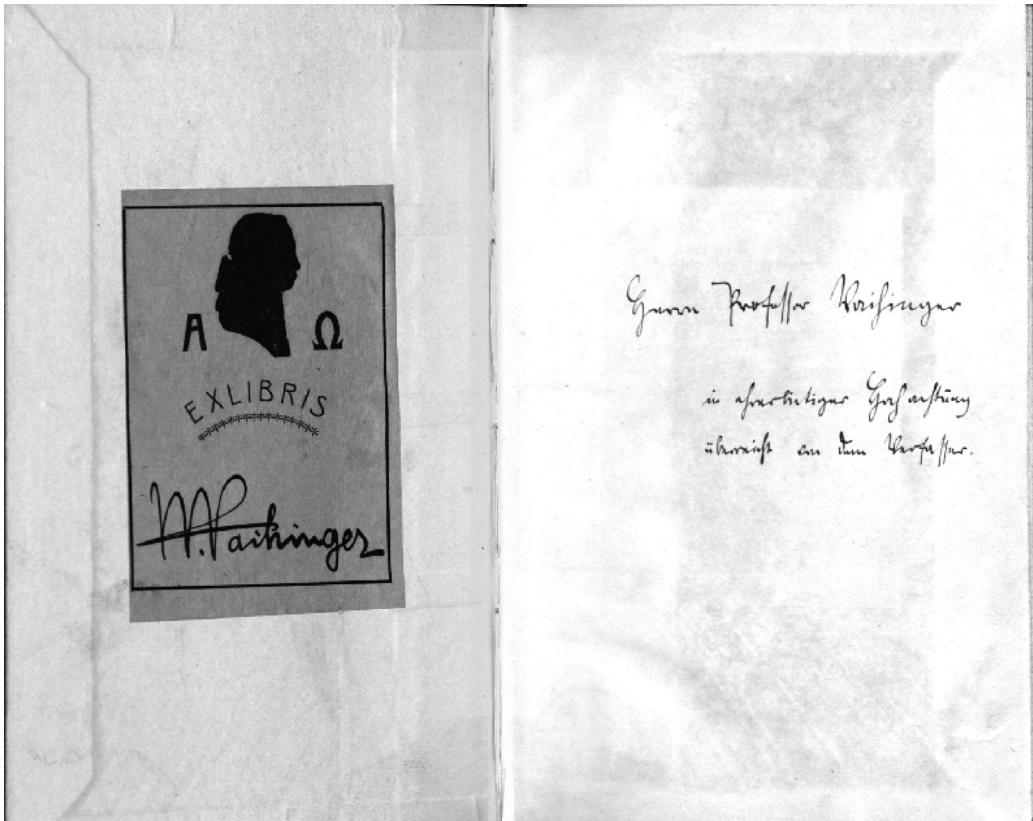 Α Ω
EXLIBRIS
Vaihinger
Herrn Professor Vaihinger
in ehrerbietiger Hochachtung
überreicht von dem Verfasser.